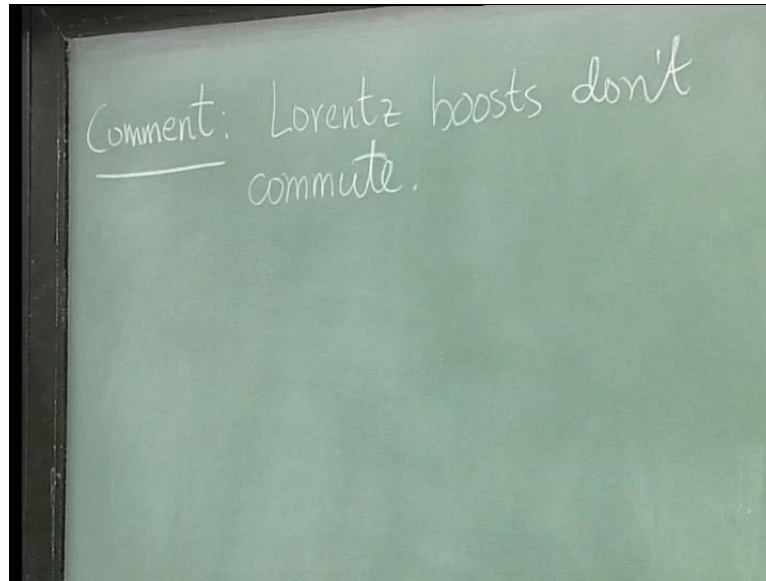 Comment: Lorentz boosts don't
commute.